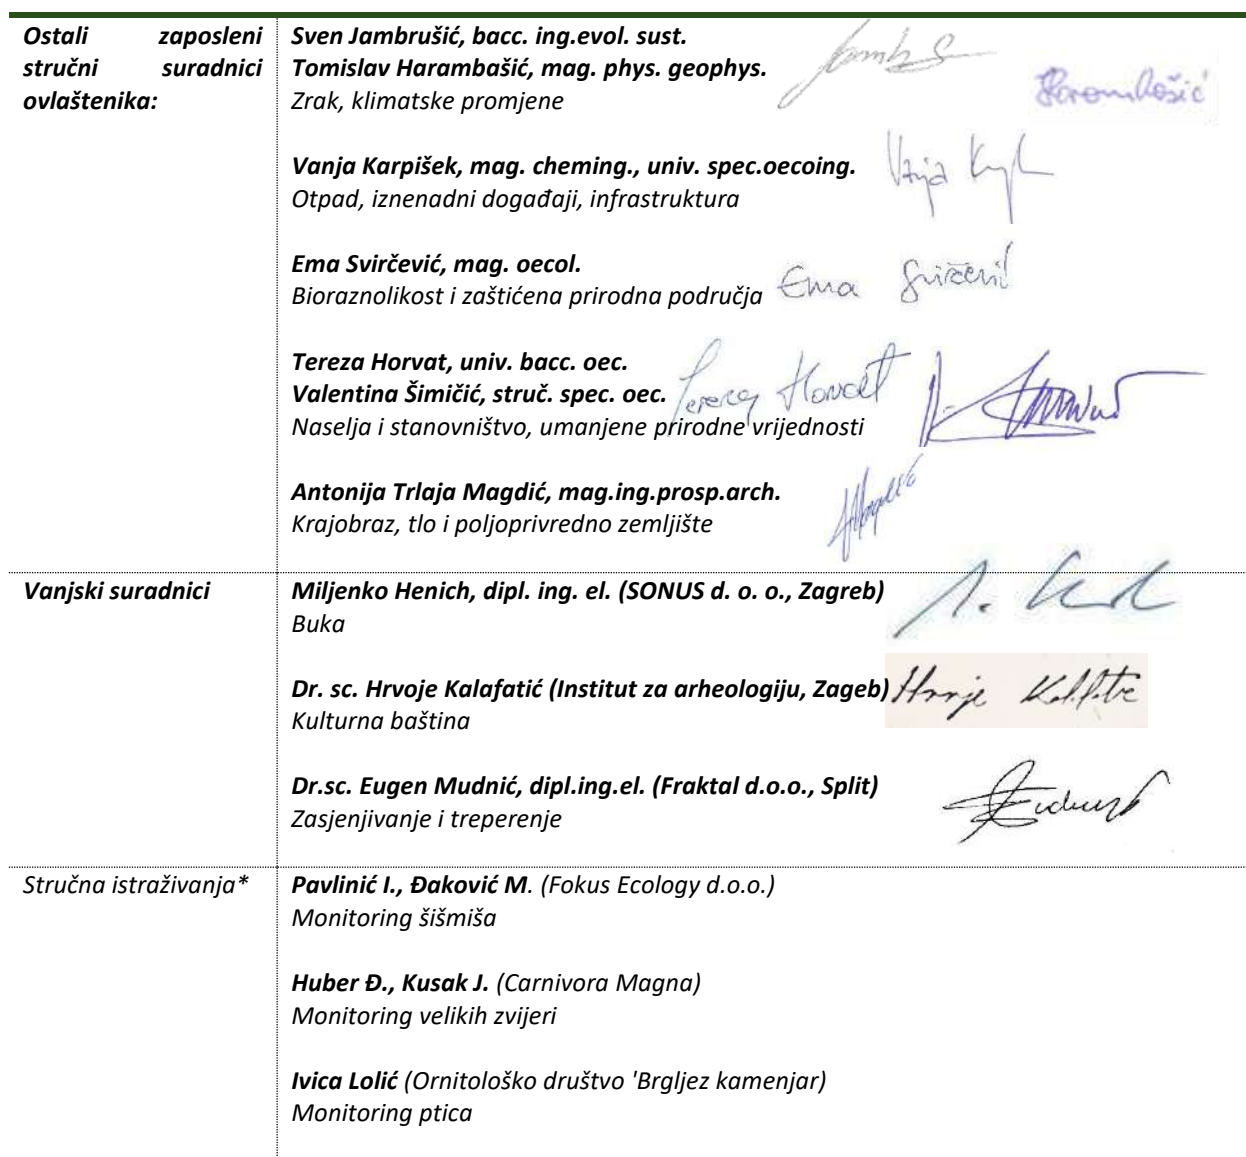 Ostali zaposleni
stručni suradnici
ovlaštenika:
Sven Jambrušić, bacc. ing.evol. sust.
Tomislav Harambašić, mag. phys. geophys.
Zrak, klimatske promjene
Vanja Karpišek, mag. cheming., univ. spec.oecoing.
Otpad, iznenadni događaji, infrastruktura
Ema Svirčević, mag. oecol.
Bioraznolikost i zaštićena prirodna područja
Ema
Tereza Horvat, univ. bacc. oec.
Valentina Šimičić, struč. spec. oec.
Tereza Horvat
Naselja i stanovništvo, umanjene prirodne vrijednosti
Antonija Trlaja Magdić, mag.ing.prosp.arch.
Krajobraz, tlo i poljoprivredno zemljište
Vanjski suradnici
Miljenko Henich, dipl. ing. el. (SONUS d. o. o., Zagreb)
Buka
Dr. sc. Hrvoje Kalafatić (Institut za arheologiju, Zageb)
Kulturna baština
Dr.sc. Eugen Mudnić, dipl.ing.el. (Fraktal d.o.o., Split)
Zasjenjivanje i treperenje
Stručna istraživanja*
Pavlinić I., Đaković M. (Fokus Ecology d.o.o.)
Monitoring šišmiša
Huber Đ., Kusak J. (Carnivora Magna)
Monitoring velikih zvijeri
Ivica Lolić (Ornitološko društvo 'Brgljez kamenjar)
Monitoring ptica